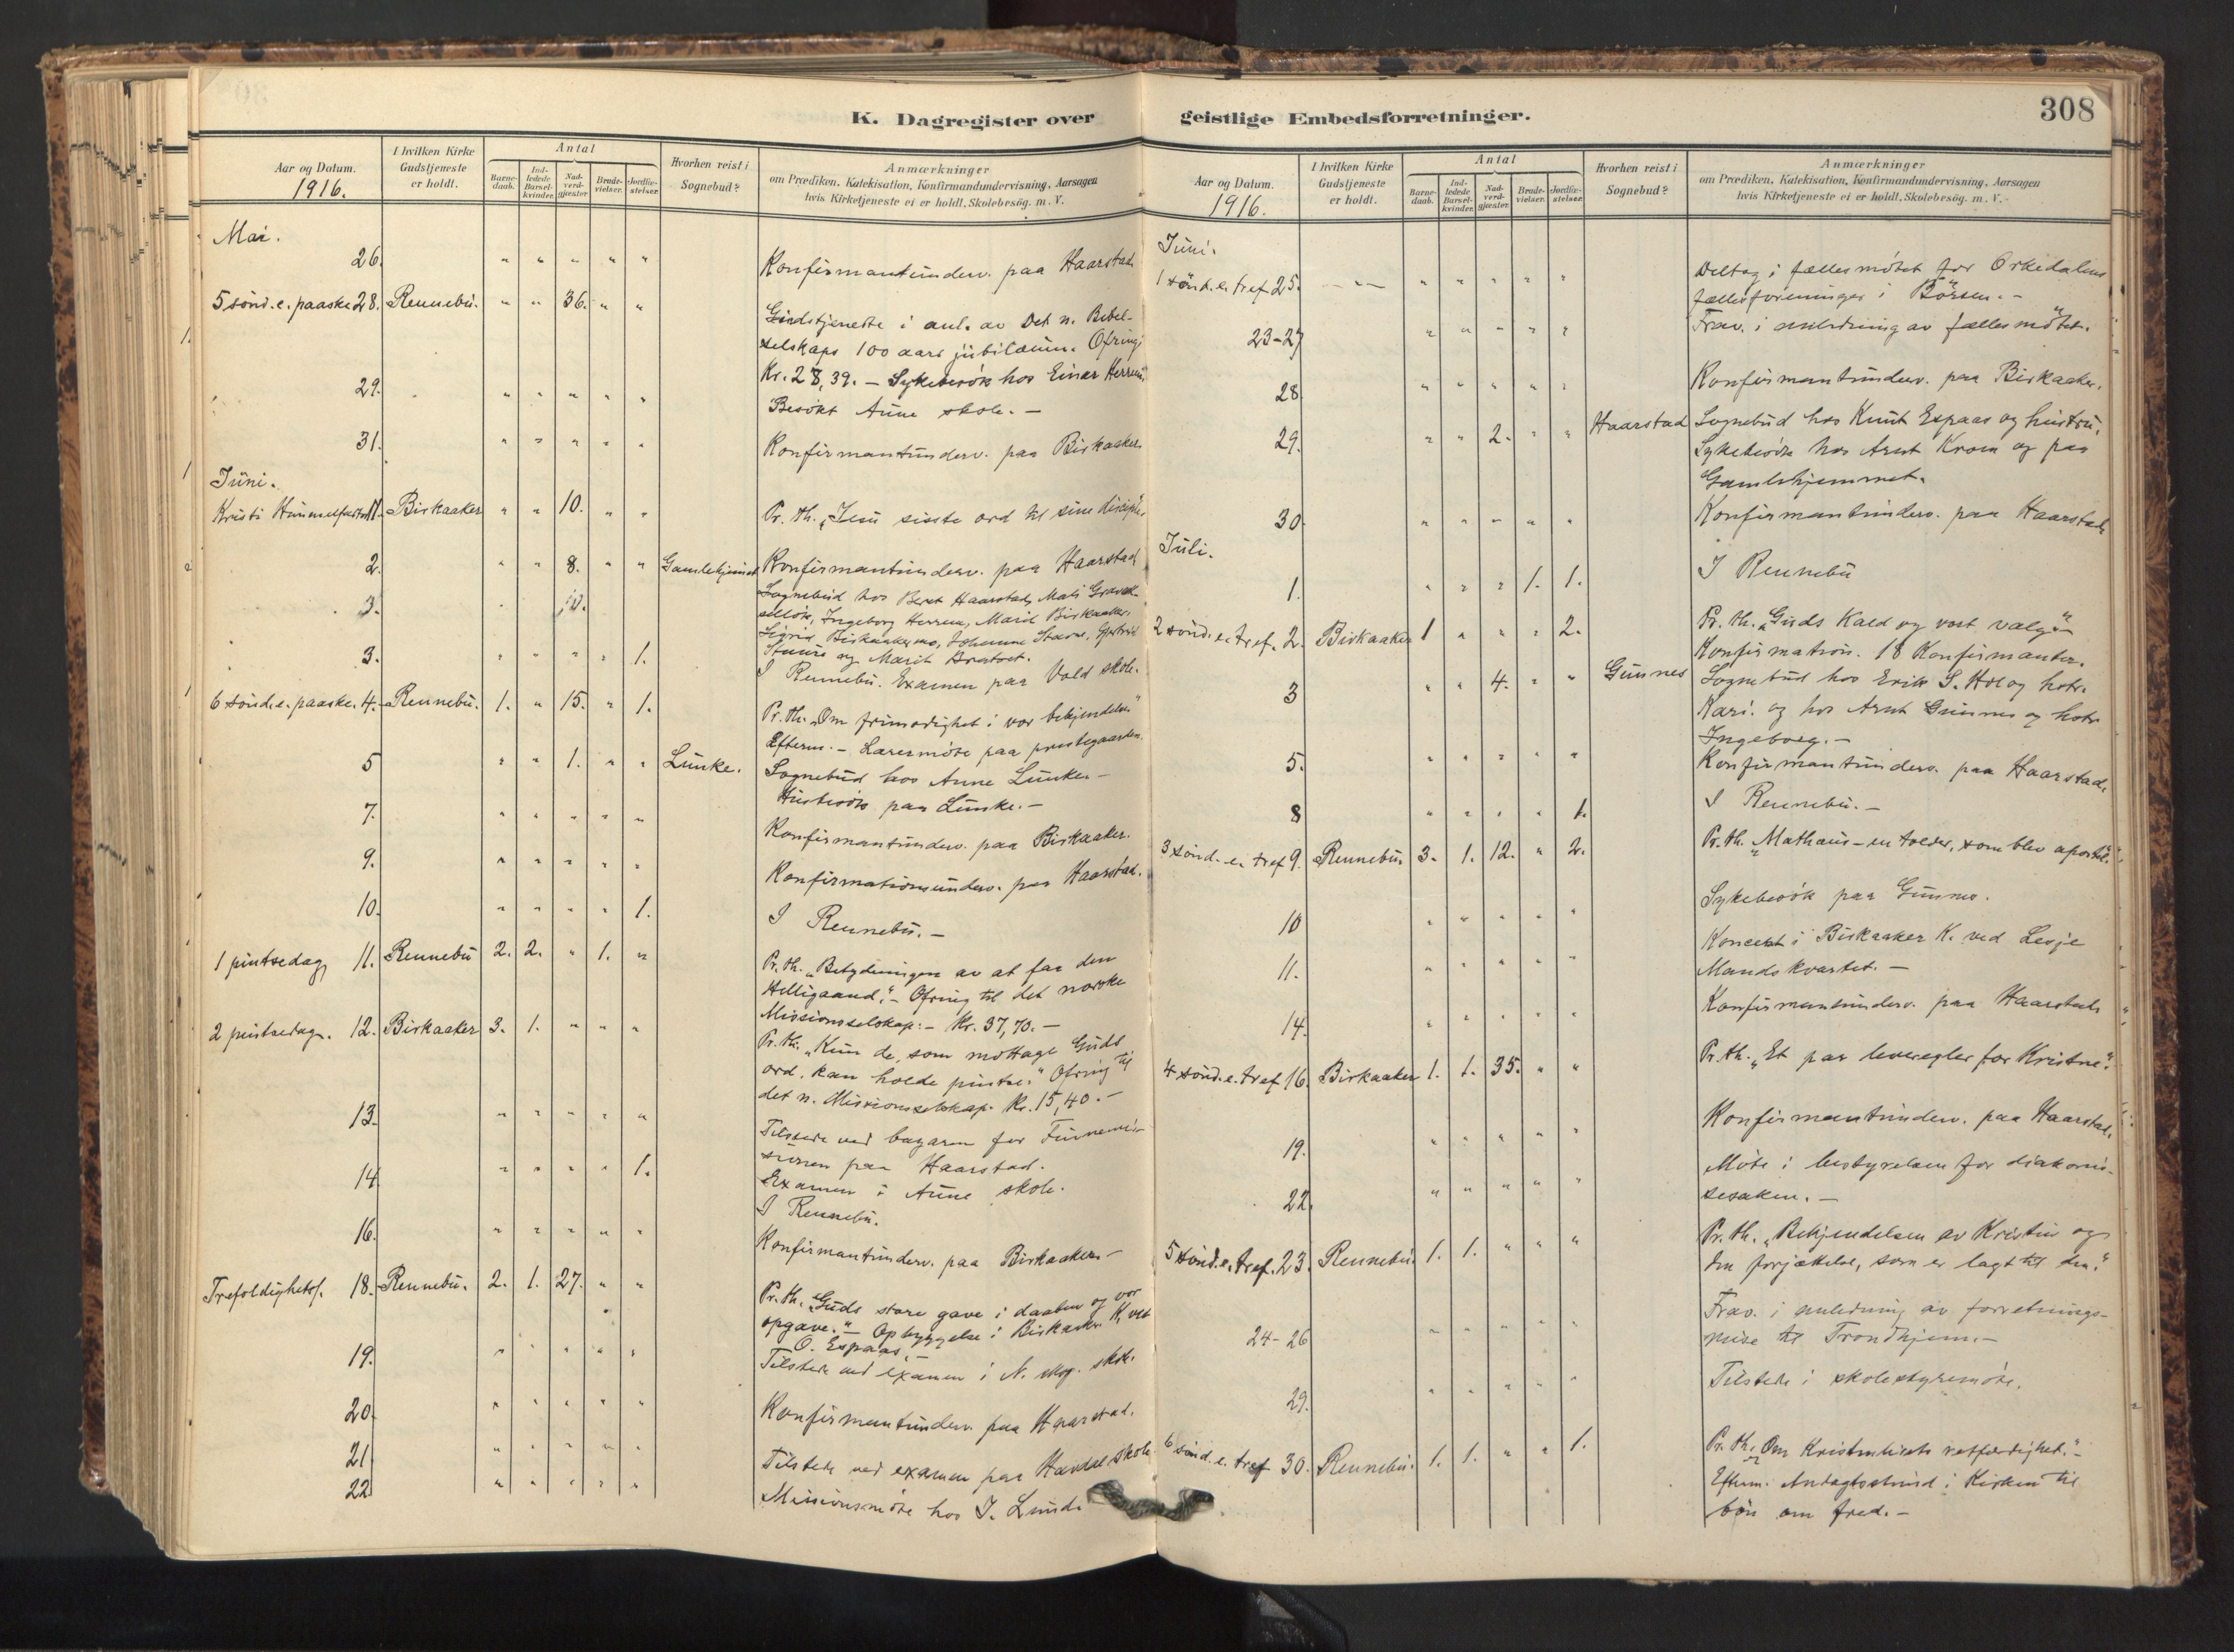 K. Dagregister over
Aar og Datum.
1916.
I hvilken Kirke
Gudstjeneste
er holdt.
Antal
Barne-
daab.
Ind-
ledede
Barsel-
kvinder.
Nad-
verd-
gjæster.
Brude-
vielser.
Jordfæ-
stelser.
Hvorhen reist i
Sognebud?
Anmærkninger
om Prædiken, Katekisation, Konfirmandundervisning, Aarsagen
hvis Kirketjeneste ei er holdt, Skolebesøg. m. V.
Mai.
26. " " " " " Konfirmantunderv. paa Haarstad
5 sönd. e. paaske 28. Rennebu. " " 36. " " Gudstjeneste i anl. av Det n. Bibel-
selskaps 100 aars jubilæum. Ofring:
Kr. 28,39. – Sykebesök hos Einar Herrem.
29. " " " " " Besökt Aune skole. –
31. " " " " " Konfirmantunderv. paa Birkaaker
Juni.
Kristi Himmelfartsd. 1. Birkaaker " " 10. " " Pr. th. „Jesu sisste ord til sine disciple.
2. " " 8. " " Gamlehjemmet Konfirmantunderv. paa Haarstad
3. Sognebud hos Beret Haarstad, Mali
Ingeborg Herrem, Marit Birkaaker,
Sigrid Birkaakermo, Johanne
og Marit
3. " " " " 1. I Rennebu. Examen paa Vold skole.
6 sönd. e. paaske. 4. Rennebu. 1. " 15. " 1. Pr. th. „Om frimodighet i vor bekjendelse"
Efterm. – Lærermöte paa prestegaarden.
5 " " 1. " " Lunke. Sognebud hos Anne Lunke. –
Husbesök paa Lunke. –
7. " " " " " Konfirmantunderv. paa Birkaaker.
9. " " " " " Konfirmationsunderv. paa Haarstad.
10. " " " " 1. I Rennebu. –
1 pintsedag 11. Rennebu 2. 2. " 1. " Pr. th. „Betydningen av at faa den
Helligaand." – Ofring til det norske
Missionsselskap: – Kr. 37,70. –
2 pintsedag. 12. Birkaaker 3. 1. " " " Pr. th. „Kun de, som mottage Guds
ord, kan holde pintse." Ofring til
det n. Missionsselskap. Kr. 15,40. –
13. " " " " " Tilstede ved bazaren for Finnemis-
sionen paa Haarstad.
14 " " " " 1. Examen i Aune skole.
I Rennebu.
16. " " " " " Konfirmantunderv. paa Birkaaker –
Trefoldighetsf. 18. Rennebu. 2. 1. 27. " " Pr. th. „Guds store gave i daaben og vor
opgave." – Opbyggelse i Birkaaker K. ved
O. Espaas. –
19. " " " " " Tilstede ved examen i N. skole.
20. " " " " " Konfirmantunderv. paa Haarstad.
21 " " " " " Tilstede ved examen paa Havdal skole.
22 " " " " " Missionsmöte hos J. Lund.
geistlige Embedsforretninger.
308
Aar og Datum.
1916.
I hvilken Kirke
Gudstjeneste
er holdt.
Antal
Barne-
daab.
Ind-
ledede
Barsel-
kvinder.
Nad-
verd-
gjæster.
Brude-
vielser.
Jordfæ-
stelser.
Hvorhen reist i
Sognebud?
Anmærkninger
om Prædiken, Katekisation, Konfirmandundervisning, Aarsagen
hvis Kirketjeneste ei er holdt, Skolebesøg. m. V.
Juni.
1 sönd. e. tref 25. – " – " " " " " Deltog i fællesmötet for Orkedalens
fællesforeninger i Börsen. –
23–27 " " " " " Frav. i anledning av fællesmötet.
28 " " " " " Konfirmantunderv. paa Birkaaker.
29. " " 2. " " Haarstad Sognebud hos Knut Espaas og hustru.
Sykebesök hos Arnt Krovn og paa
Gamlehjemmet.
30. " " " " " Konfirmantunderv. paa Haarstad
Juli.
1. " " " 1. 1. I Rennebu
2 sönd. e. tref. 2. Birkaaker 1 " " " 2. Pr. th. „Guds Kald og vort valg" –
Konfirmation. 18 Konfirmanter.
3 " " 4. " " Gunnes Sognebud hos Erik S. Hol og hstr.
Kari. og hos Arnt Gunnes og hstr.
Ingeborg. –
5. " " " " " Konfirmantunderv. paa Haarstad.
8 " " " " 1. I Rennebu. –
3 sönd. e. tref 9. Rennebu 3. 1. 12. " 2. Pr. th. „Mathæus – en tolder, som blev apostel."
10 " " " " " Sykebesök paa Gunnes.
11. " " " " " Koncert i Birkaaker K. ved Lesje
Mandskvartet. –
14. " " " " " Konfirmantunderv. paa Haarstad
4 sönd. e. tref 16. Birkaaker 1. 1. 35. " " Pr. th. „Et par leveregler for Kristne."
19. " " " " " Konfirmantunderv. paa Haarstad.
22. " " " " " Möte i bestyrelsen for diakonis-
sesaken. –
5 sönd. e. tref. 23. Rennebu. 1. 1. " " " Pr. th. „Bekjendelsen av Kristus og
den forjættelse, som er lagt til den."
24–26 " " " " " Frav. i anledning av forretnings-
reise til Trondhjem. –
29. " " " " " Tilstede i skolestyremöte.
6 sönd. e. tref 30. Rennebu. 1. 1. " " 1. Pr. th. „Om Kristenlivets retfærdighet." –
Efterm. Andagtsstund i Kirken til
bön om fred. –